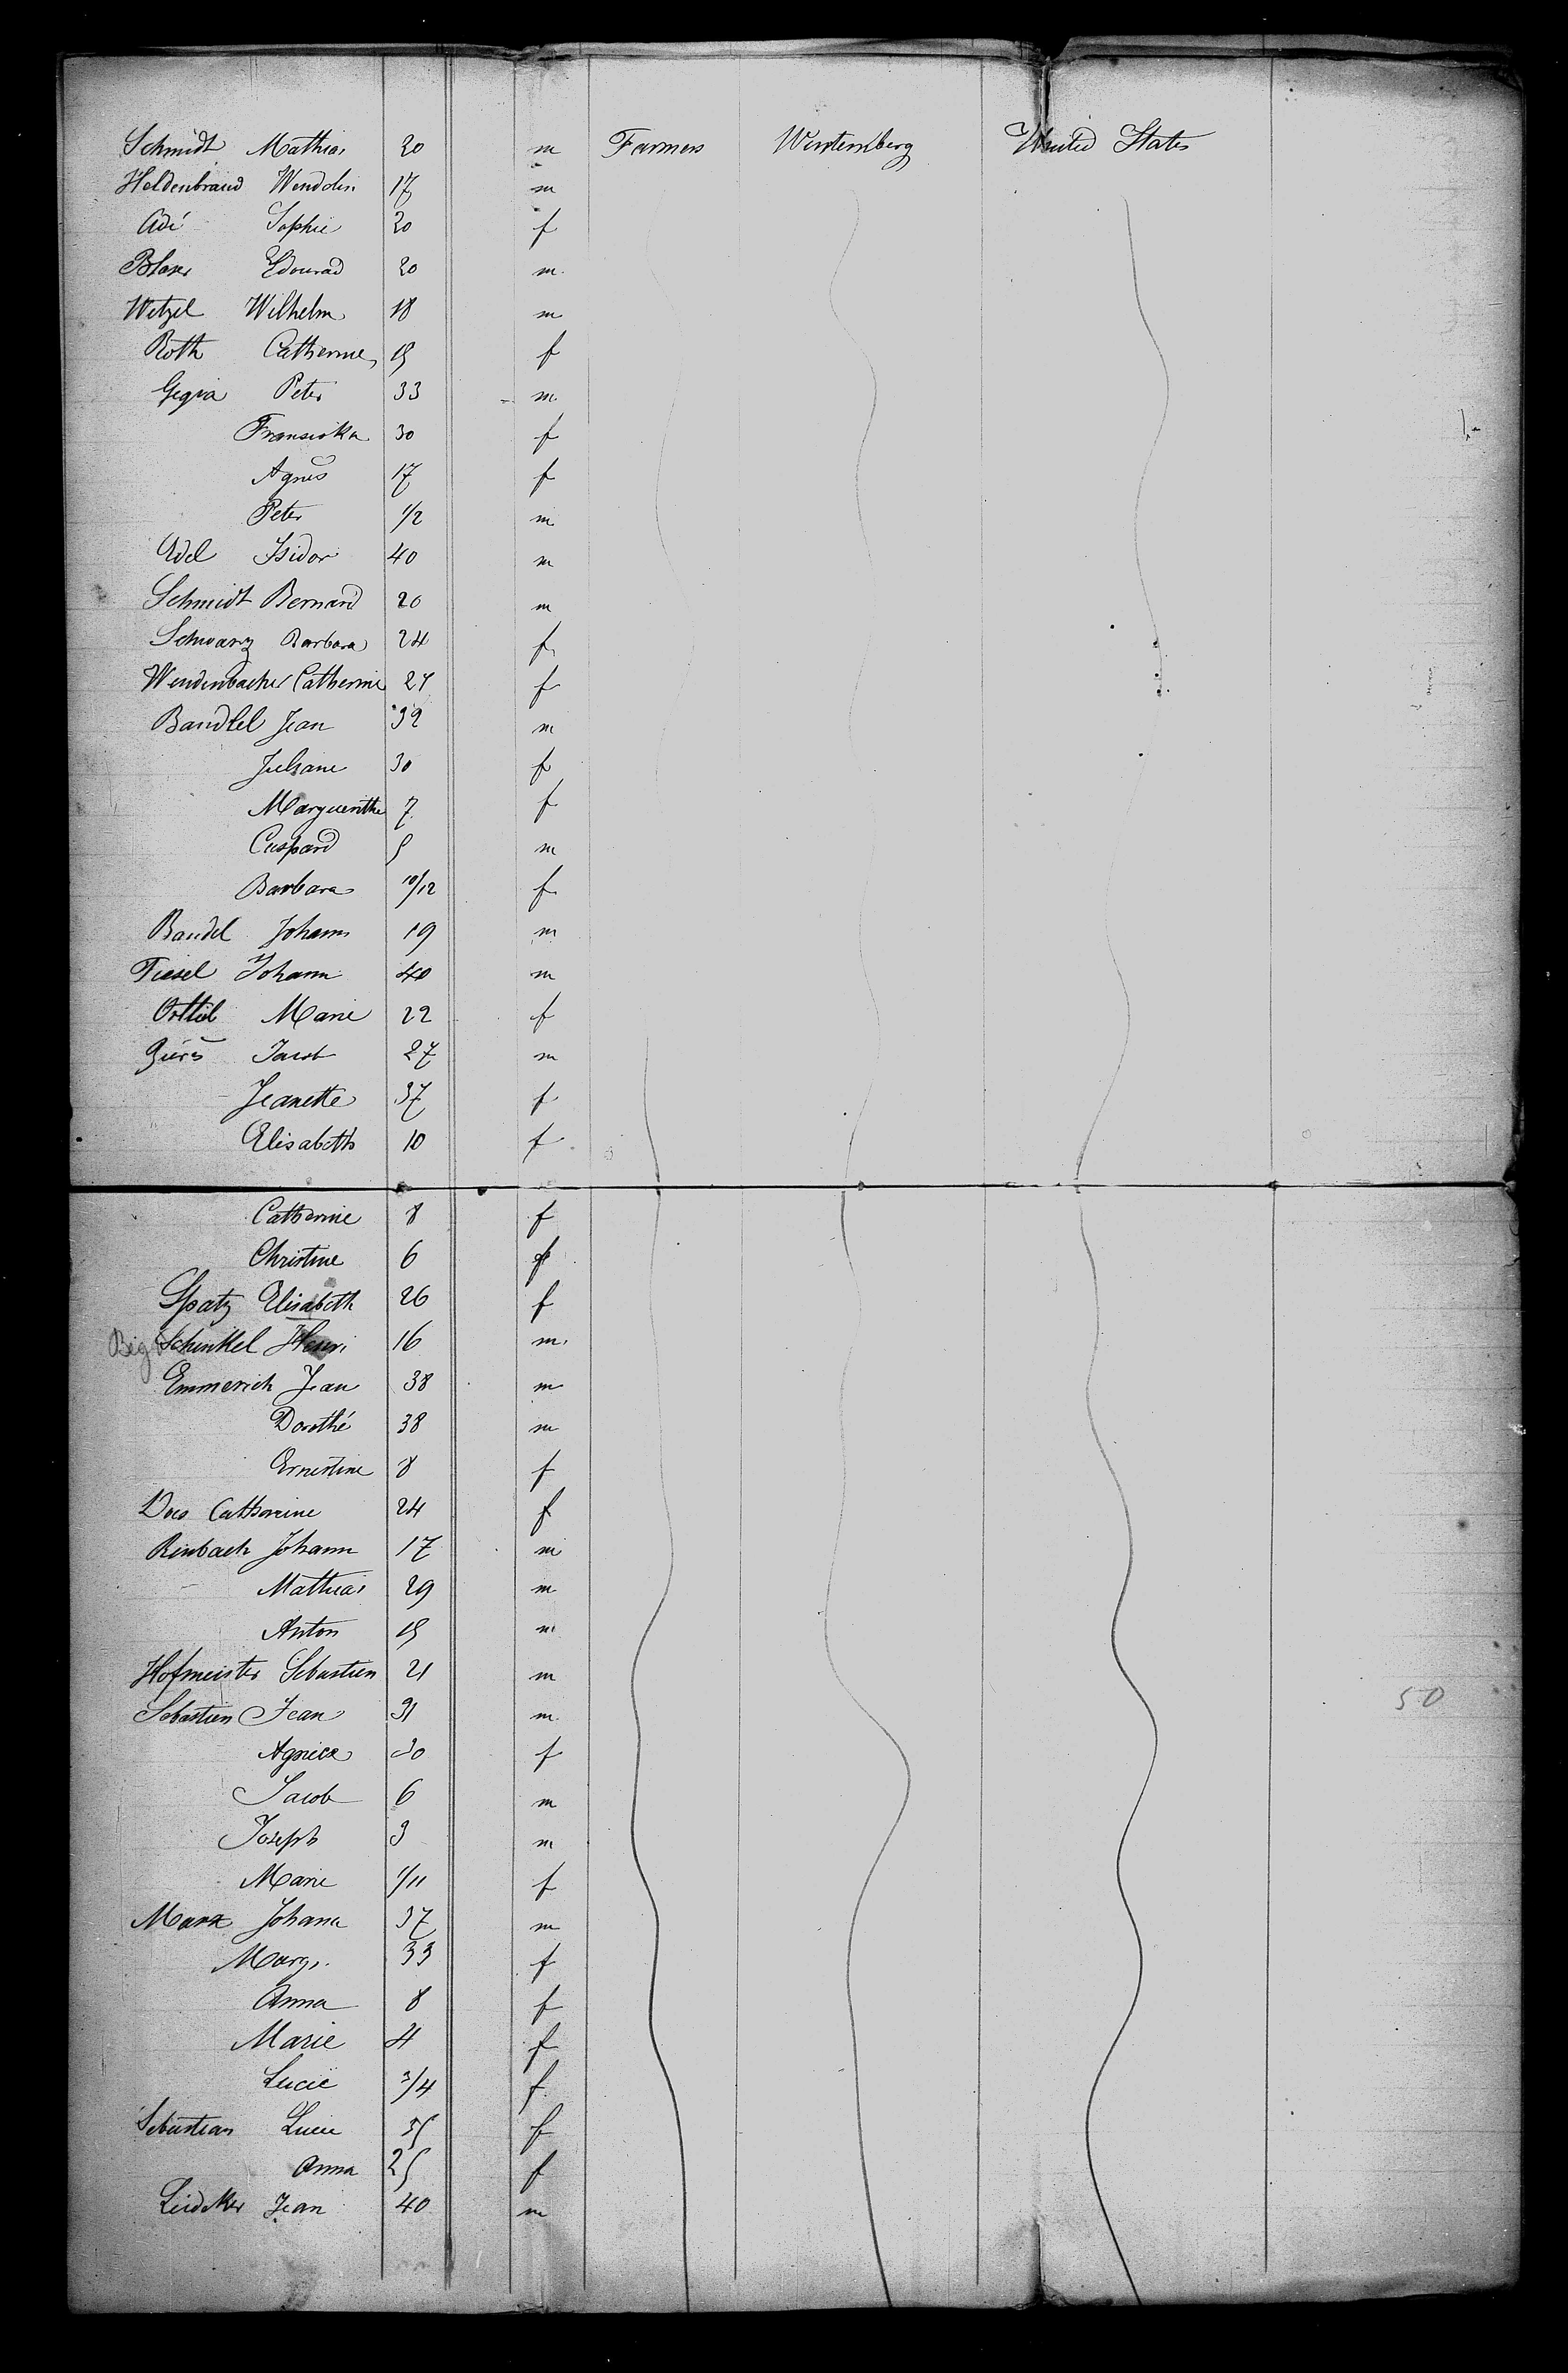 Schmidt Mathias 20 m Farmers Wurtemberg United States
Heldenbrand Wendolin 17 m
Adé Sophie 20 f
Blaser Edourad 20 m
Wetzel Wilhelm 18 m
Roth Catherine 19 f
Gegia Peter 33 m
Fransiska 30 f
Agnes 17 f
Peter 1/2 m
Edel Isidor 40 m
Schmidt Bernard 20 m
Schwarz Barbara 24 f
Wendenbacher Catherine f
Bandlel Jean 32 m
Juliane 30 f
Marguerithe 7 f
Caspard 5 m
Barbara 10/12 f
Bandel Johann 19 m
Fiesel Johann 40 m
Ottlieb Marie 22 f
Jacob 27 m
Jeanette 37 f
Elisabeth 10 f
Catherine 8 f
Christine 6 f
Spatz Elisabeth 26 f
Big Schinkel Henri 16 m
Emmerich Jean 38 m
Dorothé 38 m
Ernestine 8 f
Catherine 24 f
Rinbach Johann 17 m
Mathias 29 m
Anton 19 m
Hofmeister Sebastien 21 m
Sebastien Jean 31 m 50
Agnies 30 f
Jacob 6 m
Joseph 3 m
Marie 1/11 f
Marx Johann 37 m
Marg. 33 f
Anna 8 f
Marie 4 f
Lucie 3/4 f
Sebastian Lucie 55 f
Anna 25 f
Leideker Jean 40 m